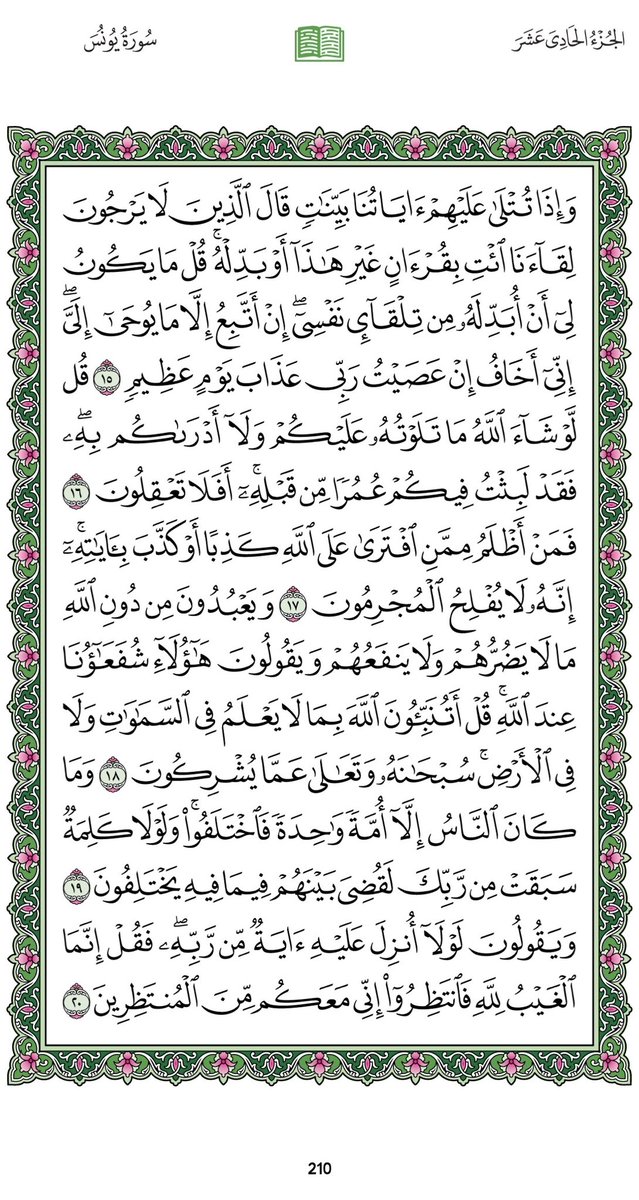 الجُزْءُ الحَادِي عَشَرَ
سُورَةُ يُونُسَ
وَإِذَا تُتْلَىٰ عَلَيْهِمْ ءَايَاتُنَا بَيِّنَٰتٍ قَالَ ٱلَّذِينَ لَا يَرْجُونَ
لِقَآءَنَا ٱئْتِ بِقُرْءَانٍ غَيْرِ هَٰذَآ أَوْ بَدِّلْهُ ۚ قُلْ مَا يَكُونُ
لِىٓ أَنْ أُبَدِّلَهُۥ مِن تِلْقَآئِ نَفْسِىٓ ۖ إِنْ أَتَّبِعُ إِلَّا مَا يُوحَىٰٓ إِلَىَّ ۖ
إِنِّىٓ أَخَافُ إِنْ عَصَيْتُ رَبِّى عَذَابَ يَوْمٍ عَظِيمٍ ١٥ قُل
لَّوْ شَآءَ ٱللَّهُ مَا تَلَوْتُهُۥ عَلَيْكُمْ وَلَآ أَدْرَىٰكُم بِهِۦ ۖ
فَقَدْ لَبِثْتُ فِيكُمْ عُمُرًا مِّن قَبْلِهِۦٓ ۚ أَفَلَا تَعْقِلُونَ ١٦
فَمَنْ أَظْلَمُ مِمَّنِ ٱفْتَرَىٰ عَلَى ٱللَّهِ كَذِبًا أَوْ كَذَّبَ بِـَٔايَٰتِهِۦٓ ۚ
إِنَّهُۥ لَا يُفْلِحُ ٱلْمُجْرِمُونَ ١٧ وَيَعْبُدُونَ مِن دُونِ ٱللَّهِ
مَا لَا يَضُرُّهُمْ وَلَا يَنفَعُهُمْ وَيَقُولُونَ هَٰٓؤُلَآءِ شُفَعَٰٓؤُنَا
عِندَ ٱللَّهِ ۚ قُلْ أَتُنَبِّـُٔونَ ٱللَّهَ بِمَا لَا يَعْلَمُ فِى ٱلسَّمَٰوَٰتِ وَلَا
فِى ٱلْأَرْضِ ۚ سُبْحَٰنَهُۥ وَتَعَٰلَىٰ عَمَّا يُشْرِكُونَ ١٨ وَمَا
كَانَ ٱلنَّاسُ إِلَّآ أُمَّةً وَٰحِدَةً فَٱخْتَلَفُوا۟ ۚ وَلَوْلَا كَلِمَةٌ
سَبَقَتْ مِن رَّبِّكَ لَقُضِىَ بَيْنَهُمْ فِيمَا فِيهِ يَخْتَلِفُونَ ١٩
وَيَقُولُونَ لَوْلَآ أُنزِلَ عَلَيْهِ ءَايَةٌ مِّن رَّبِّهِۦ ۖ فَقُلْ إِنَّمَا
ٱلْغَيْبُ لِلَّهِ فَٱنتَظِرُوٓا۟ إِنِّى مَعَكُم مِّنَ ٱلْمُنتَظِرِينَ ٢٠
210